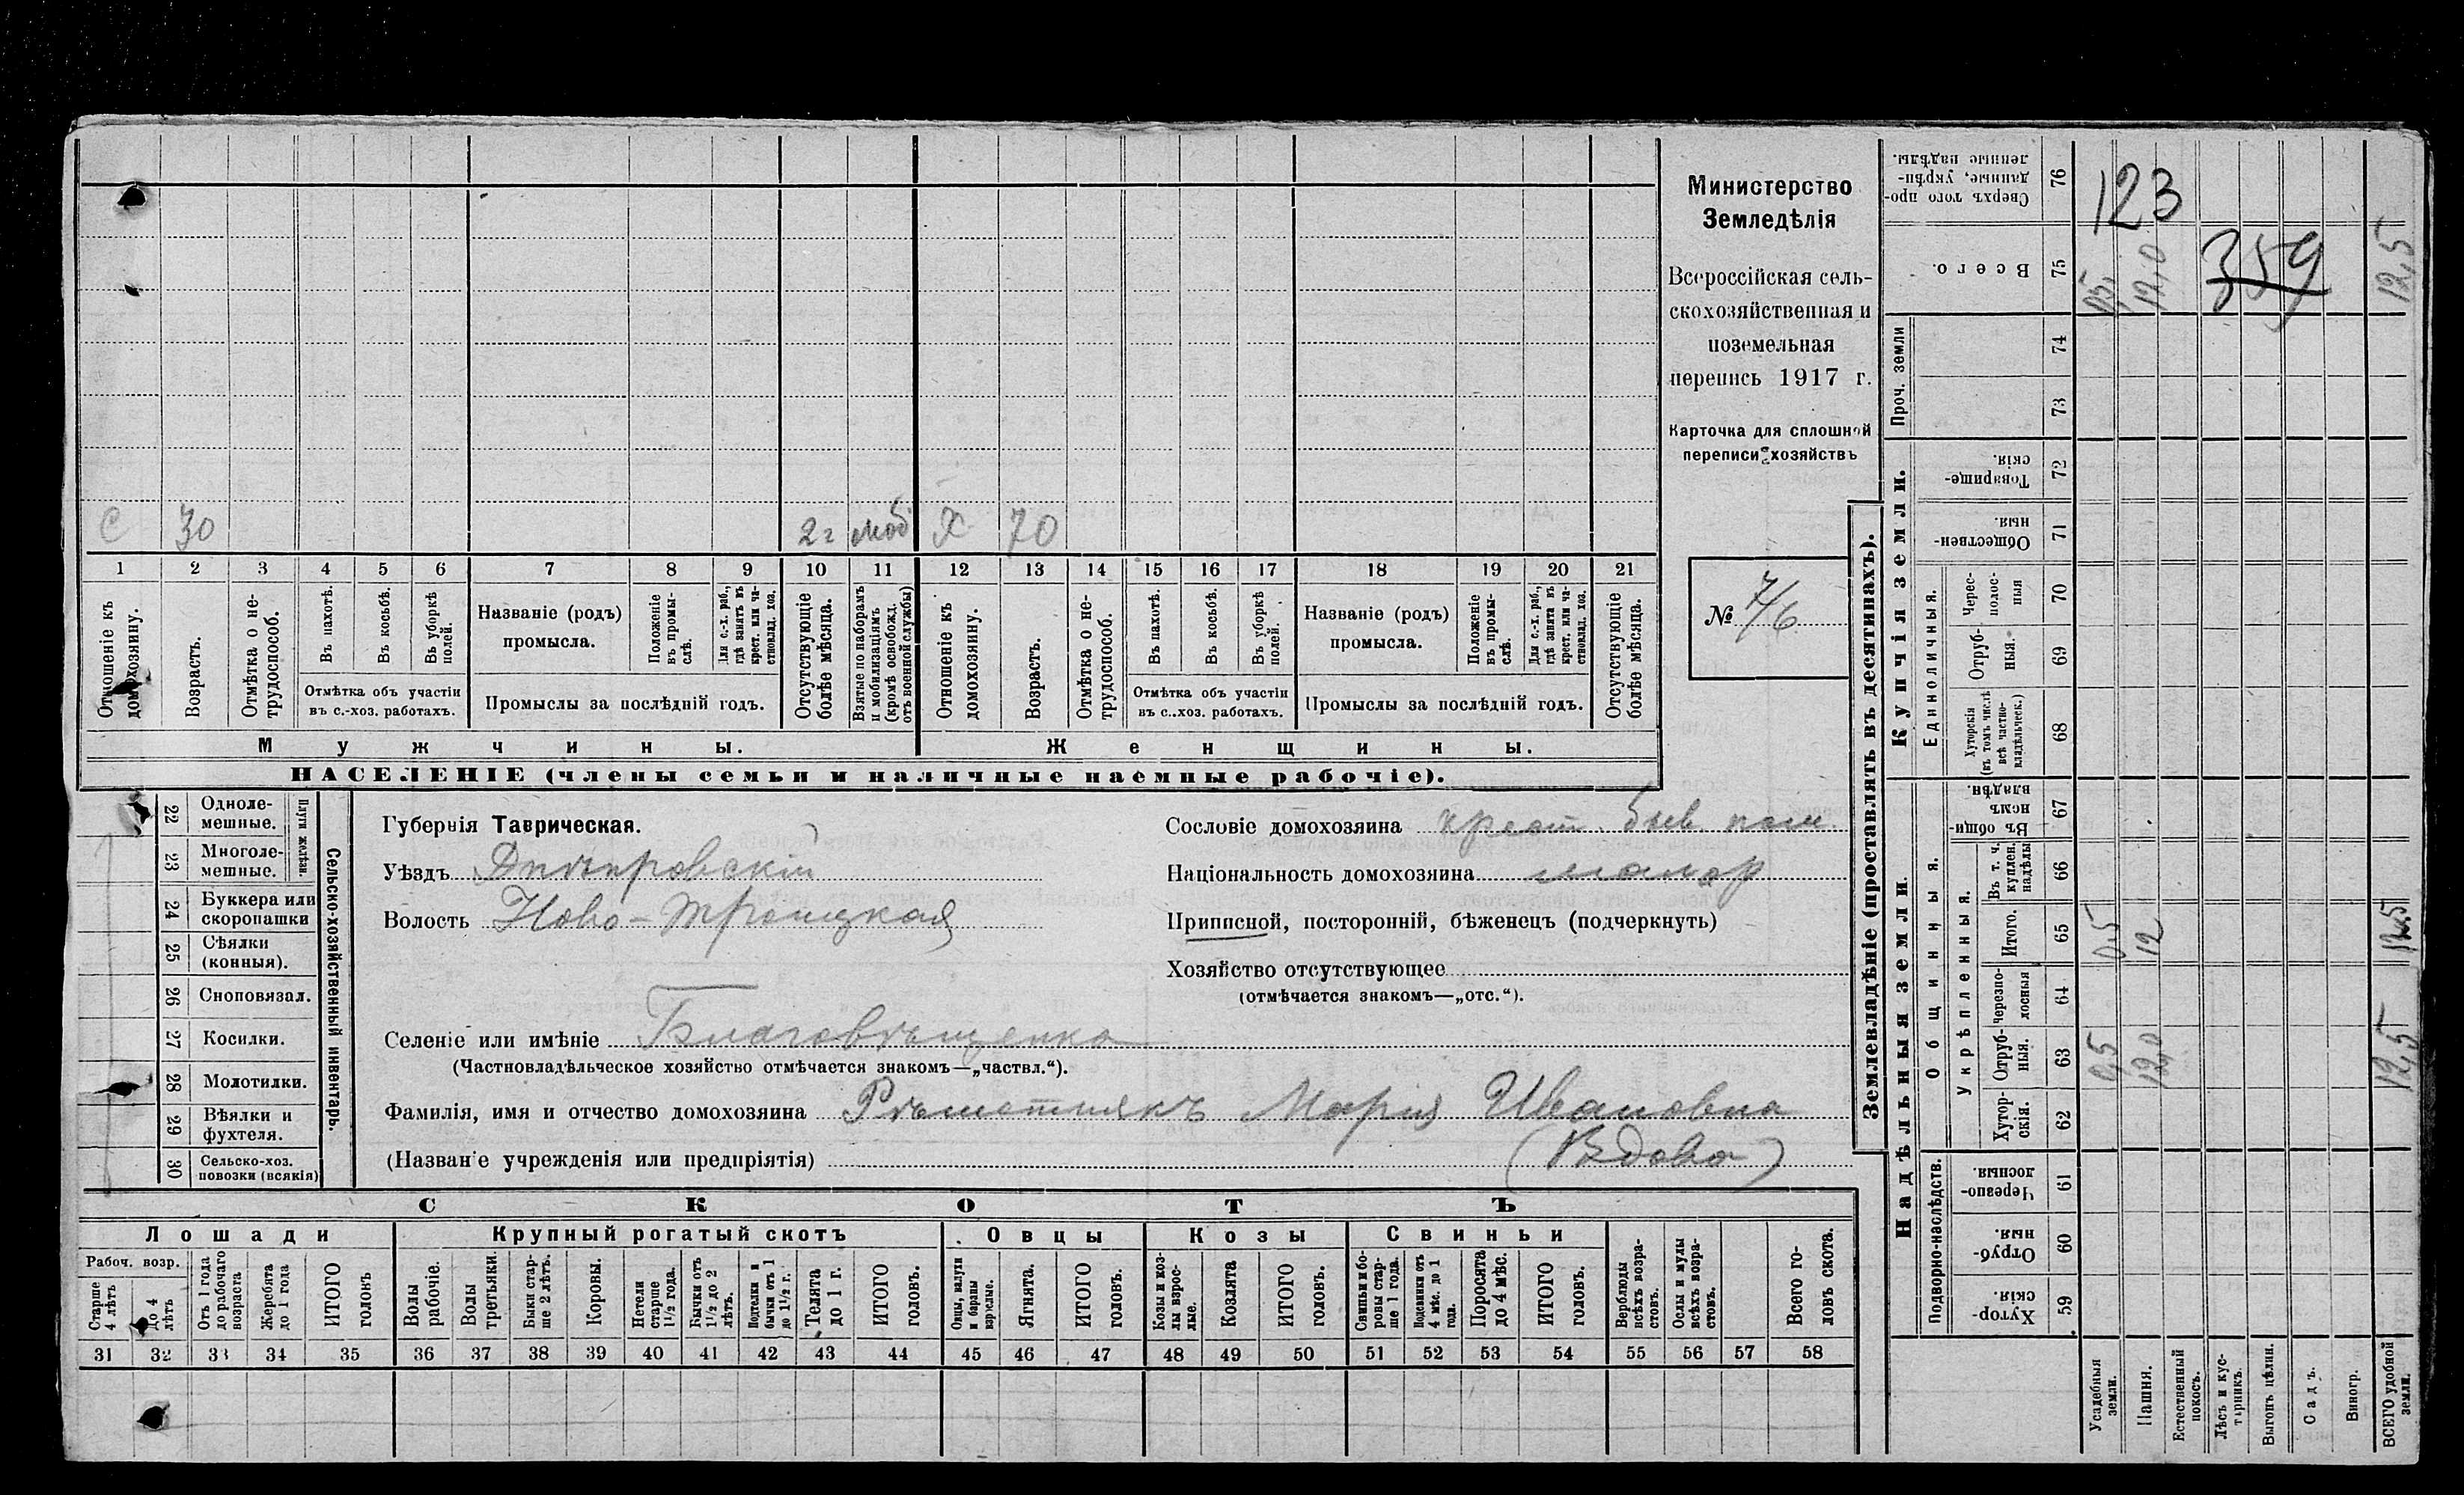 Министерство
Земледѣлія
Всероссійская сель-
скохозяйственная и
поземельная
перепись 1917 г.
Карточка для сплошной
переписи хозяйствъ
№ 7/6
С 30 2 г моб Х 70
1 2 3 4 5 6 7 8 9 10 11 12 13 14 15 16 17 18 19 20 21
Отношеніе къ домохозяину.
Возрастъ.
Отмѣтка о не-трудоспособ.
Въ пахотѣ.
Въ косьбѣ.
Въ уборкѣ полей.
Отмѣтка объ участіи
въ с.-хоз. работахъ.
Названіе (родъ)
промысла.
Положеніе въ промы-слѣ.
Для с.-х. раб., гдѣ занятъ въ крест. или ча-стновлад. хоз.
Промыслы за послѣдній годъ.
Отсутствующіе болѣе мѣсяца.
Взятые по наборамъ и мобилизаціямъ (кромѣ освобожд. отъ военной службы)
Отношеніе къ домохозяину.
Возрастъ.
Отмѣтка о не-трудоспособ.
Въ пахотѣ.
Въ косьбѣ.
Въ уборкѣ полей.
Отмѣтка объ участіи
въ с.-хоз. работахъ.
Названіе (родъ)
промысла.
Положеніе въ промы-слѣ.
Для с.-х. раб., гдѣ занята въ крест. или ча-стновлад. хоз.
Промыслы за послѣдній годъ.
Отсутствующіе болѣе мѣсяца.
Мужчины. Женщины.
НАСЕЛЕНІЕ (члены семьи и наличные наемные рабочіе).
22 Одноле-мешные.
23 Многоле-мешные.
Плуги желѣзн.
24 Буккера или скоропашки
25 Сѣялки (конныя).
26 Сноповязал.
27 Косилки.
28 Молотилки.
29 Вѣялки и фухтеля.
30 Сельско-хоз. повозки (всякія)
Сельско-хозяйственный инвентарь.
Губернія Таврическая.
Уѣздъ Днѣпровскій
Волость Ново-Троицкая
Селеніе или имѣніе Благовѣщенка
(Частновладѣльческое хозяйство отмѣчается знакомъ—„частвл.“).
Фамилія, имя и отчество домохозяина Рѣшетнякъ Марія Ивановна
(Названіе учрежденія или предпріятія) (Вдова)
Сословіе домохозяина крест. быв. пом
Національность домохозяина малор
Приписной, посторонній, бѣженецъ (подчеркнуть)
Хозяйство отсутствующее
(отмѣчается знакомъ—„отс.“).
СКОТЪ
Лошади Крупный рогатый скотъ Овцы Козы Свиньи
Рабоч. возр.
Старше 4 лѣтъ
До 4 лѣтъ
Отъ 1 года до рабочаго возраста
Жеребята до 1 года
ИТОГО головъ
Волы рабочіе.
Волы третьяки.
Быки стар-ше 2 лѣтъ.
Коровы.
Нетели старше 1½ года.
Бычки отъ 1½ до 2 лѣтъ.
Подтелки и бычки отъ 1 до 1½ г.
Телята до 1 г.
ИТОГО головъ.
Овцы, валухи и бараны взрослые.
Ягнята.
ИТОГО головъ.
Козы и коз-лы взрос-лые.
Козлята
ИТОГО головъ.
Свиньи и бо-ровы стар-ше 1 года.
Подсвинки отъ 4 мѣс. до 1 года.
Поросята до 4 мѣс.
ИТОГО головъ.
Верблюды всѣхъ возра-стовъ.
Ослы и мулы всѣхъ возра-стовъ.
Всего го-ловъ скота.
31 32 33 34 35 36 37 38 39 40 41 42 43 44 45 46 47 48 49 50 51 52 53 54 55 56 57 58
Землевладѣніе (проставлять въ десятинахъ).
Сверхъ того про-данные, укрѣп-ленные надѣлы. 76
123
Всего. 75 0,5 12,0 12,5
359
Проч. земли 74 73
Купчія земли.
Товарище-скія. 72
Обществен-ныя. 71
Единоличныя.
Черес-полос-ныя 70
Отруб-ныя. 69
Хуторскія (въ томъ числѣ всѣ частно-владѣльческ.) 68
Надѣльныя земли.
Общинныя.
Въ общи-немъ владѣн. 67
Укрѣпленныя.
Въ т. ч. куплен. надѣлы 66
Итого. 65 0,5 12 12,5
Черезпо-лосныя 64
Отруб-ныя. 63 0,5 12,0 12,5
Хутор-скія. 62
Подворно-наслѣдств.
Черезпо-лосныя. 61
Отруб-ныя. 60
Хутор-скія. 59
Усадебныя земли.
Пашня.
Естественный покосъ.
Лѣсъ и кус-тарникъ.
Выгонъ цѣлин.
Садъ.
Виногр.
ВСЕГО удобной земли.